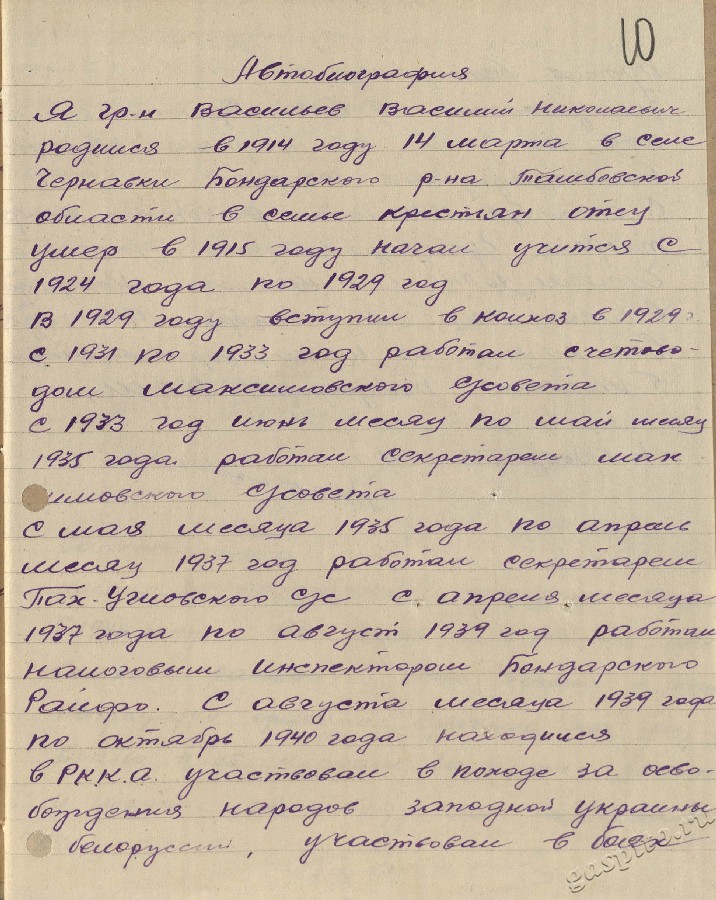 10
Автобиография
Я гр-н Васильев Василий Николаевич
родился в 1914 году 14 марта в селе
Чернавки Бондарского р-на Тамбовской
области в семье крестьян отец
умер в 1915 году начал учится с
1924 года по 1929 год
В 1929 году вступил в колхоз в 1929 г
с 1931 по 1933 год работал счетово-
дом Максимовского с/совета
с 1933 год июнь месяц по май месяц
1935 года работал секретарем мак
имовского с/совета
С мая месяца 1935 года по апрель
месяц 1937 год работал секретарем
Пах-Угловского с/с С апреля месяца
1937 года по август 1939 год работал
налоговым инспектором Бондарского
Райфо. С августа месяца 1939 года
по октябрь 1940 года находился
в Р.К.К.А. участвовал в походе за осво-
бождения народов западной украины
белоруссии, участвовал в боях
gaspito.ru